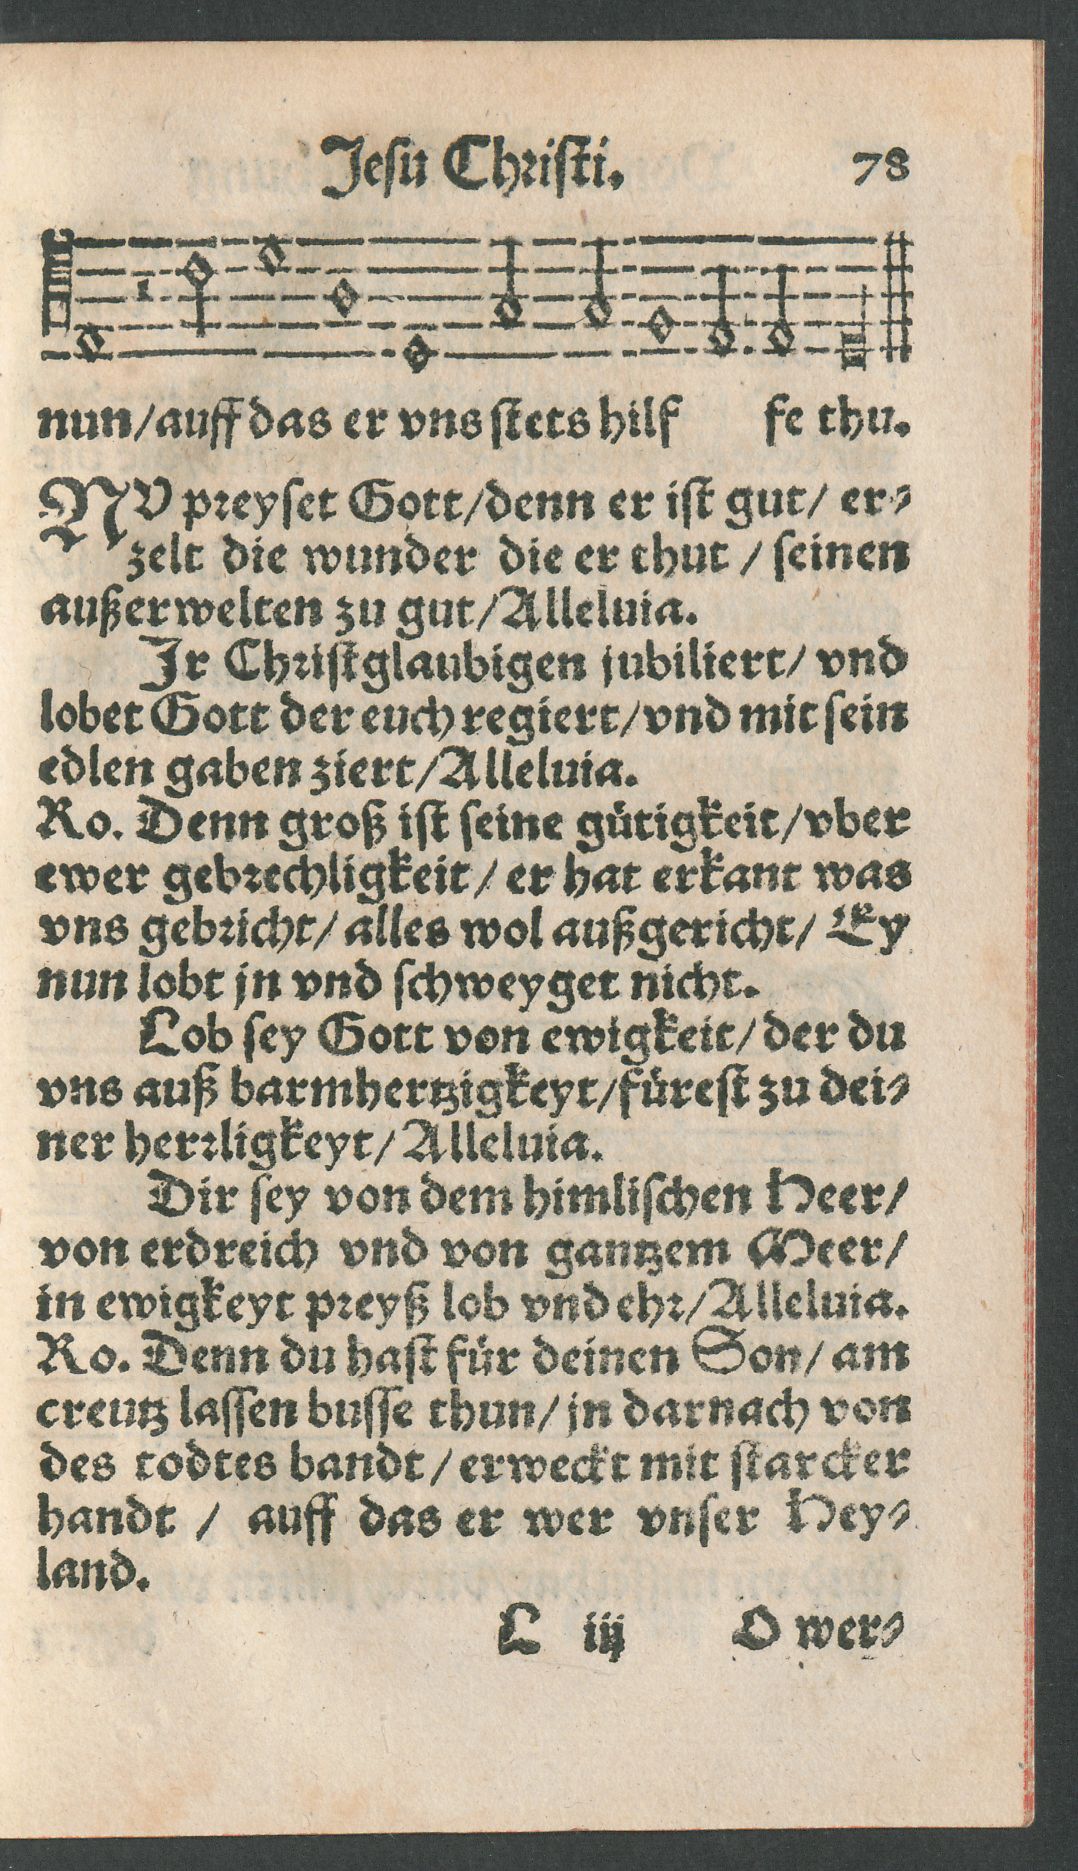 Jesu Christi. 78
nun/auff das er vns stets hilf fe thu.
NV preyset Gott/denn er ist gut/ er⸗
zelt die wunder die er thut / seinen
außerwelten zu gut/Alleluia.
Jr Christglaubigen jubiliert/ vnd
lobet Gott der euch regiert/vnd mit sein
edlen gaben ziert/Alleluia.
Ro. Denn groß ist seine gütigkeit/vber
ewer gebrechligkeit/ er hat erkant was
vns gebricht/ alles wol außgericht/ Ey
nun lobt jn vnd schweyget nicht.
Lob sey Gott von ewigkeit/ der du
vns auß barmhertzigkeyt/fürest zu dei⸗
ner herrligkeyt/ Alleluia.
Dir sey von dem himlischen Heer/
von erdreich vnd von gantzem Meer/
in ewigkeyt preyß lob vnd ehr/Alleluia.
Ro. Denn du hast für deinen Son/ am
creutz lassen busse thun/ jn darnach von
des todtes bandt / erweckt mit starcker
handt / auff das er wer vnser Hey⸗
land.
L iij O wer⸗